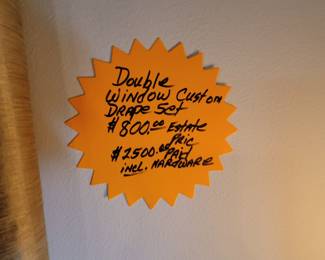 Double
Window Custom
Drape Set
$800.00 Estate
Pric
$2500.00 Paid
incl. Hardware